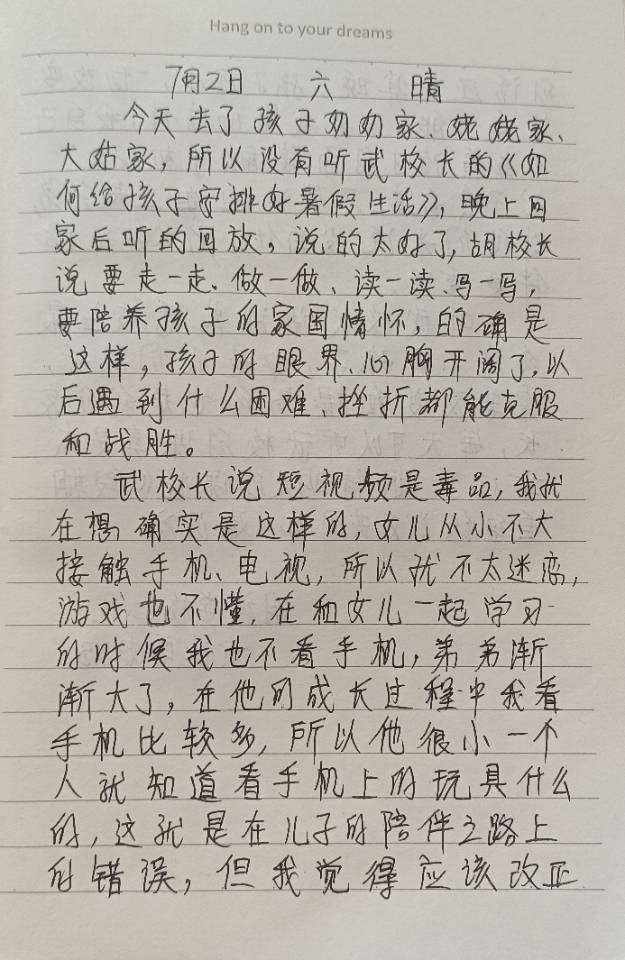 Hang on to your dreams
7月2日 六 晴
今天去了孩子奶奶家、姥姥家、
大姑家，所以没有听武校长的《如
何给孩子安排好暑假生活》，晚上回
家后听的回放。说的太好了，胡校长
说要走一走、做一做、读一读、写一写，
要陪养孩子的家国情怀，的确是
这样，孩子的眼界、心胸开阔了，以
后遇到什么困难、挫折都能克服
和战胜。
武校长说短视频是毒品，我就
在想确实是这样的，女儿从小不大
接触手机、电视，所以就不太迷恋，
游戏也不懂，在和女儿一起学习
的时候我也不看手机，弟弟渐
渐大了，在他的成长过程中我看
手机比较多，所以他很小一个
人就知道看手机上的玩具什么
的，这就是在儿子的陪伴之路上
的错误，但我觉得应该改正